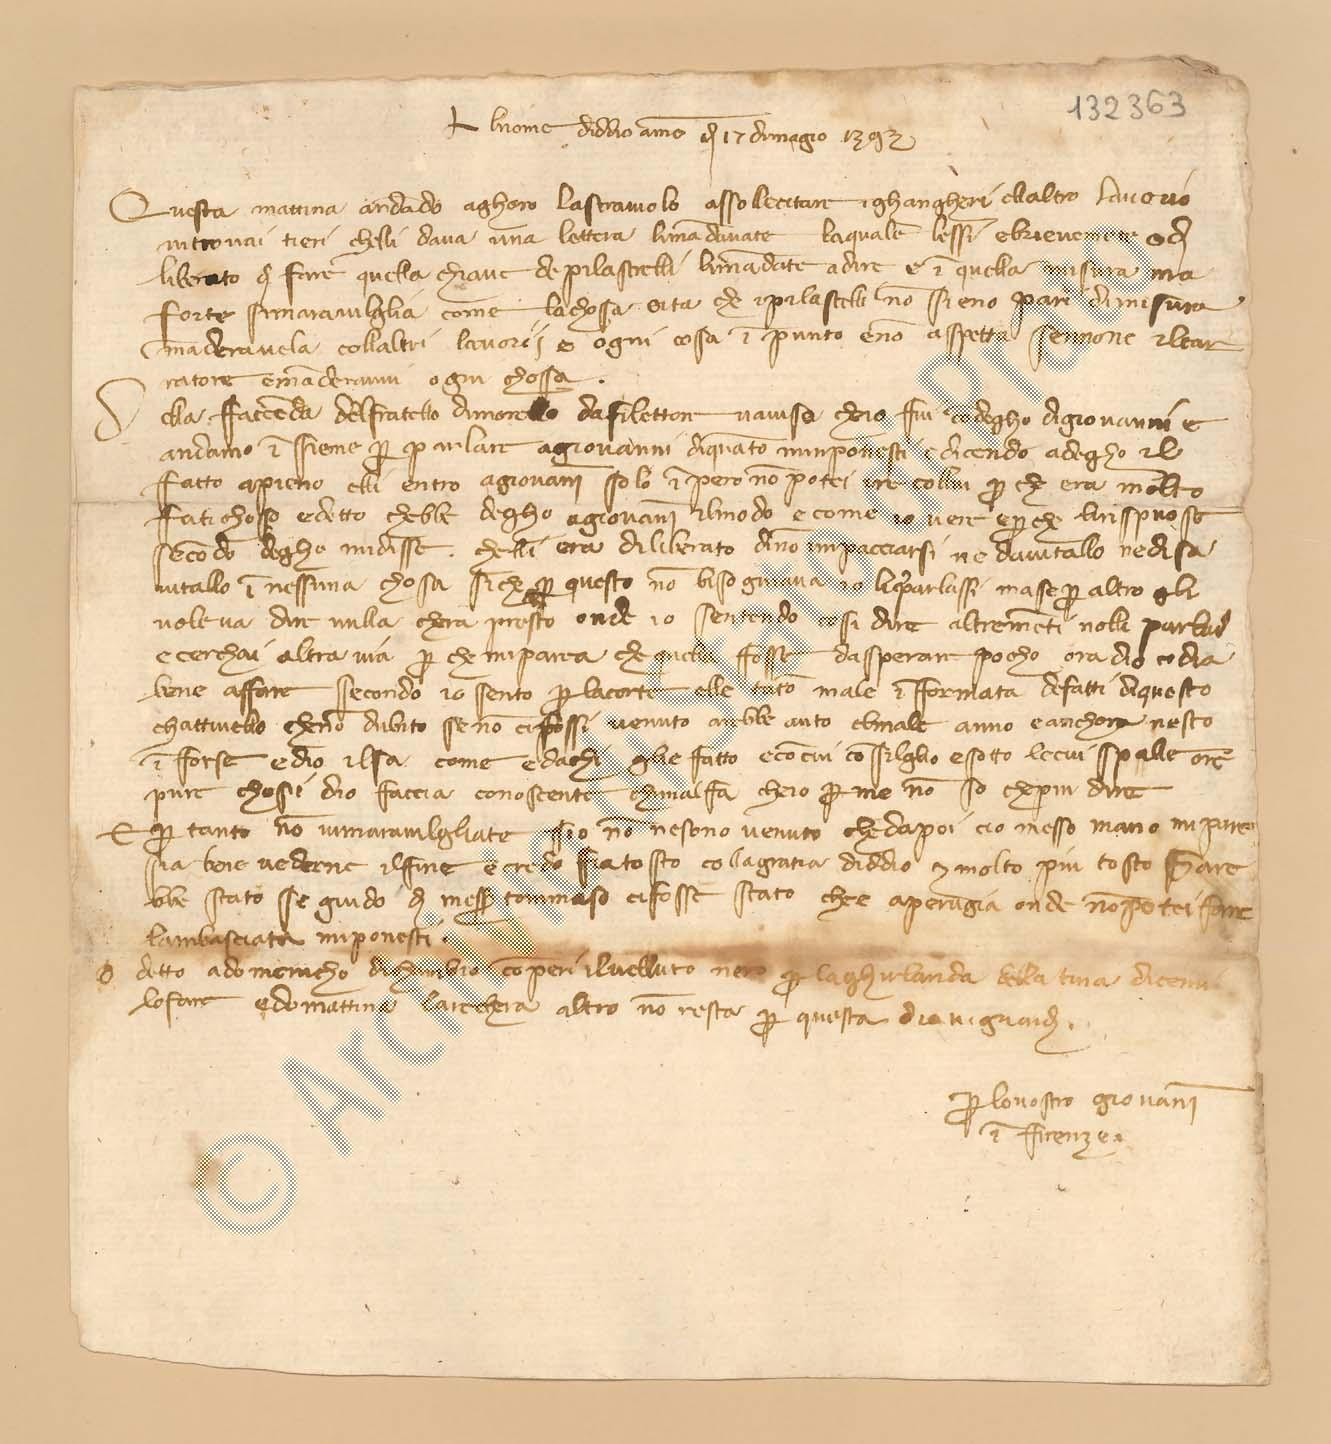 132363
+ Al nome di ddio ame dì 17 di magio 1393
Questa mattina andādo a ghoro lastraiuolo a ssollecitare i ghangheri e ll altro lavorio
mi trovai tieri che lli dava una lettera li mādavate la quale lessi e brievemente ò
liberato di fare quella chiave de pilastrelli li māndate a dire e ī quella misura ma
forte si maravilglia come la chosa sta che i pilastrelli nō sieno pari di misura
māderavela coll altri lavorii e ogni cosa ī punto e nō aspetta se nnone il car
ratore e māderavvi ogni chossa.
Della ffaccēda del fratello di morello da filettore v aviso ch io fui co degho di giovanni e
andamo īssieme p parlare a giovanni di quāto m inponesti e dicendo a degho il
fatto apieno elli entrò a giovanī solo īperò nō potei ire collui p che era molto
fatichoso e detto ch ebbe degho a giovanī il modo e come io v ere e p che li rispuose
secōdo degho mi disse. ch elli era diliberato di nō impacciarsi ne d aiutallo ne di sa
iutallo ī nessuna chosa sì che p questo nō bisognava io li parlassi ma se p altro gli
voleva dire nulla ch era presto onde io sentendo così dire altremēti no lli parlai
e cerchai altra via p che mi parea che quella fosse da sperare pocho ora dio ce dia
bene affare secondo io sento p la corte ell è tāto male ī formata de fatti di questo
chattivello che nō dubito se nō ci fossi venuto arebbe auto el male anno e anchora n è sto
ī forse e dio il sa come e da chi gli è fatto e cō cui cōssilglio e sotto le cui spalle ore
pure chosì dio faccia conoscente chi mal fa ch io p me nō so che più dire
E p tanto nō vi maravilgliate s io nō ne sono venuto che da poi ci ò messo mano mi pare
sia bene vederne il fine e credo fia tosto colla gratia di ddio e molto più tosto sare
bbe stato se guido di mess tommaso ci fosse stato che è a perugia onde nō potei fare
l ambasciata m inponesti.
O detto a domenicho di chanbio cōperi il velluto nero p la ghirlanda della tina dicemi
lo fare e domattina l arechera altro nō resta p questa dio vi guardi.
p lo vostro giovanī
ī ffirenze.
© Archivio di Stato di Prato